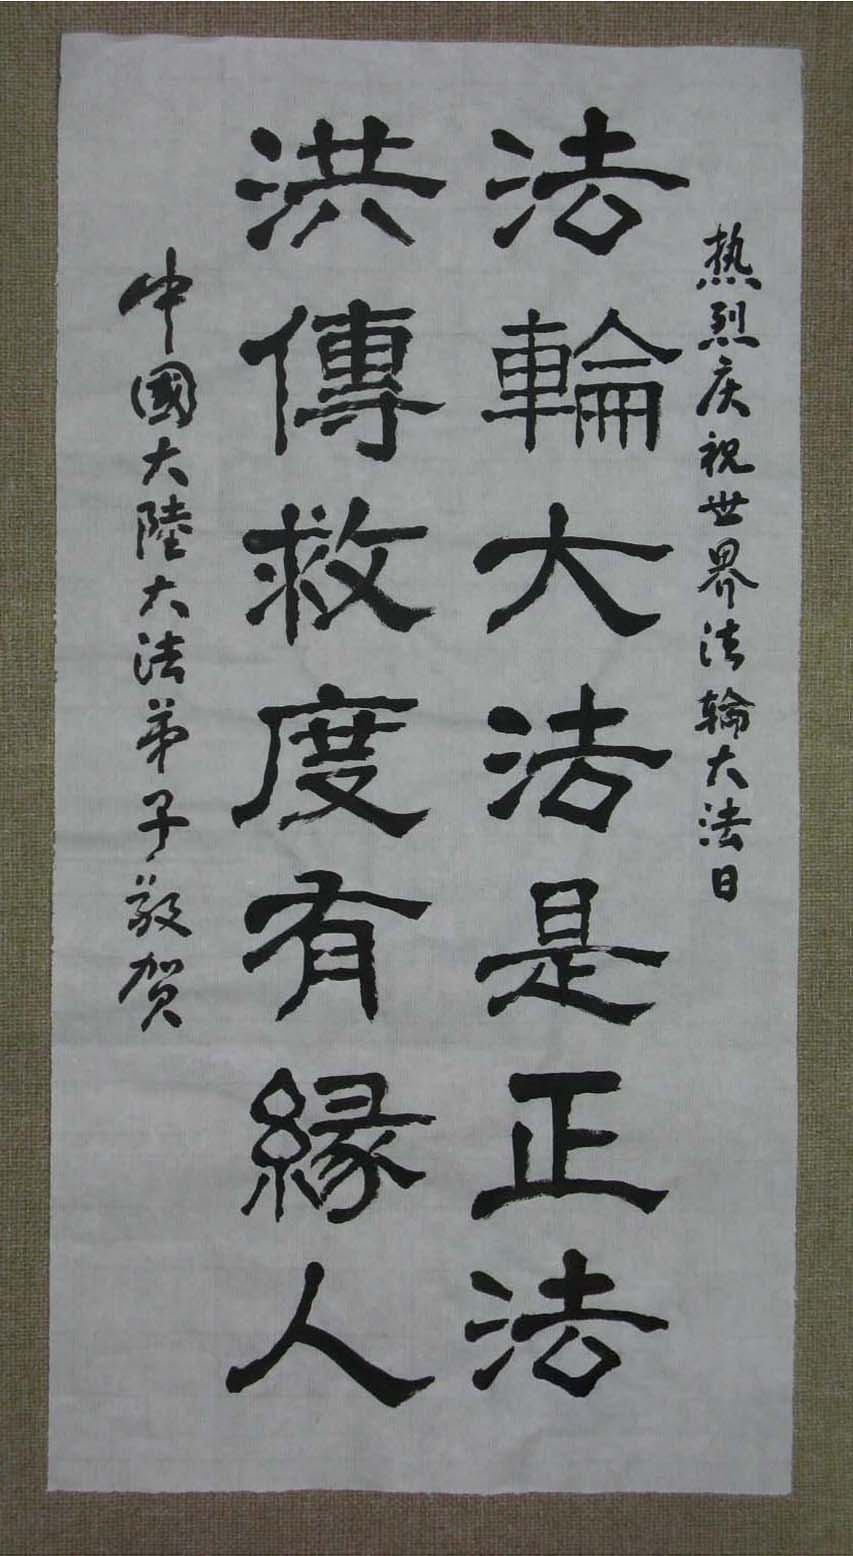 热烈庆祝世界法輪大法日
法輪大法是正法
洪傳救度有緣人
中國大陸大法弟子敬贺